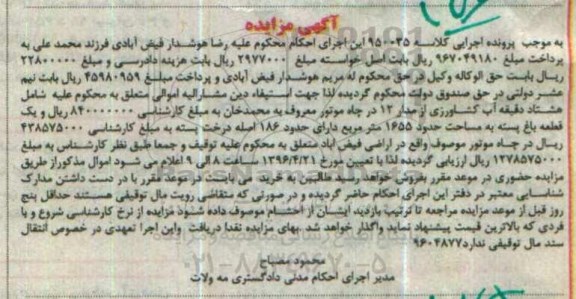 آگهی مزایده
به موجب پرونده اجرایی کلاسه 950035 این اجرای احکام محکوم علیه رضا هوشدار فیض آبادی فرزند محمد علی به
پرداخت مبلغ 967049180 ریال بابت اصل خواسته مبلغ 2977000 ریال بابت هزینه دادرسی و مبلغ 22800000
ریال بابت حق الوکاله وکیل در حق محکوم له مریم هوشدار فیض آبادی و پرداخت مبلغ 45980959 ریال بابت نیم
عشر دولتی در حق صندوق دولت محکوم گردیده لذا جهت استیفاء دین مشارالیه اموالی متعلق به محکوم علیه شامل
هشتاد دقیقه آب کشاورزی از مدار 12 در چاه موتور معروف به محمدخان به مبلغ کارشناسی 840000000 ریال و یک
قطعه باغ پسته به مساحت حدود 1655 متر مربع دارای حدود 186 اصله درخت پسته به مبلغ کارشناسی 438575000
ریال در چاه موتور موصوف واقع در اراضی فیض آباد متعلق به محکوم علیه توقیف و جمعا طبق نظر کارشناس به مبلغ
1278575000 ریال ارزیابی گردیده لذا با تعیین مورخ 1396/4/21 ساعت 8 الی 9 اعلام می شود اموال مذکور از طریق
مزایده حضوری در موعد مقرر بفروش خواهد رسید طالبین به خرید می بایست در موعد مقرر با در دست داشتن مدارک
شناسایی معتبر در دفتر این اجرای احکام حاضر گردیده و در صورتی که متقاضی رویت مال توقیفی هستند حداقل پنج
روز قبل از موعد مزایده مراجعه تا ترتیب بازدید ایشان از موصوف داده شود مزایده از نرخ کارشناسی شروع و با
فردی که بالاترین قیمت پیشنهاد نماید واگذار خواهد شد. بهای مزایده نقدا دریافت و این اجرا تعهدی در خصوص انتقال
سند مال توقیفی ندارد 9604877
محمود مصباح
مدیر اجرای احکام مدنی دادگستری مه ولات